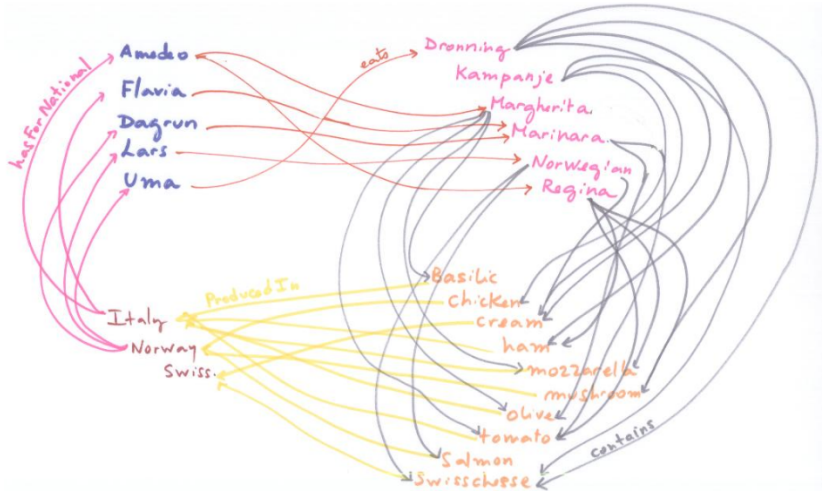 Amedeo
Flavia
Dagrun
Lars
Uma
hasForNational
eats
Dronning
Kampanje
Margherita
Marinara
Norwegian
Regina
Italy
Norway
Swiss.
ProducedIn
Basilic
Chicken
cream
ham
mozzarella
mushroom
olive
tomato
Salmon
Swisscheese
contains